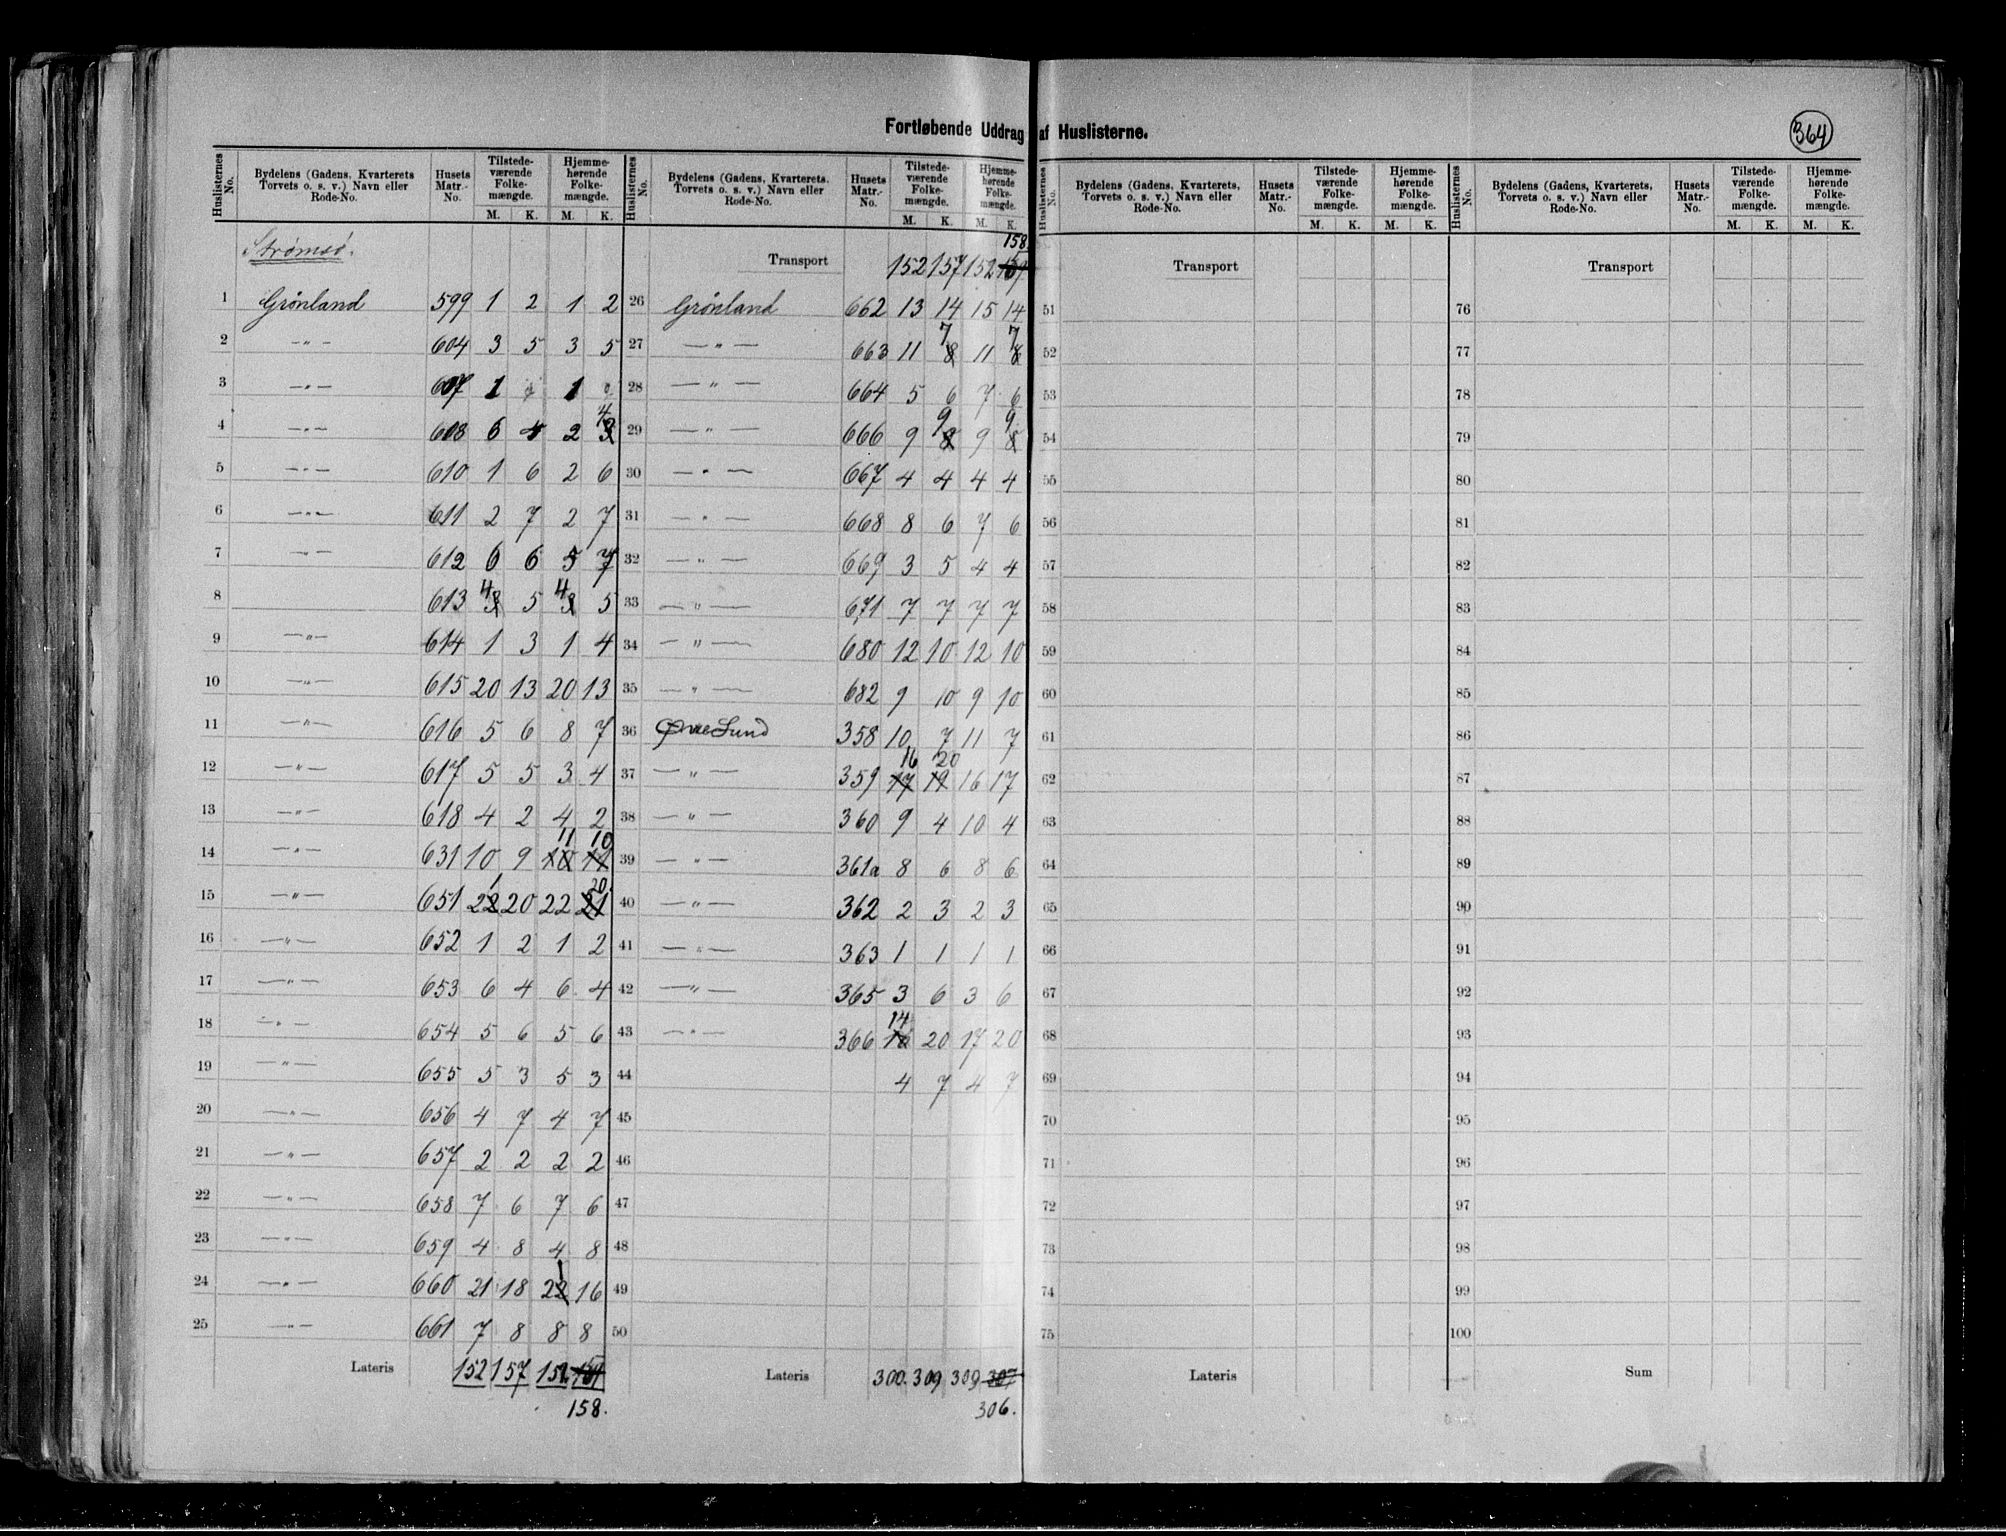 Fortløbende Uddrag af Huslisterne.
364
Huslisternes No. Bydelens (Gadens, Kvarterets, Torvets o. s. v.) Navn eller Rode-No. Husets Matr.-No. Tilstede-værende Folke-mængde. M. K. Hjemme-hørende Folke-mængde. M. K.
Strømsø.
1 Grønland 599 1 2 1 2
2 —"— 604 3 5 3 5
3 —"— 607 1 1
4 —"— 608 6 4 2 4 3
5 —"— 610 1 6 2 6
6 —"— 611 2 7 2 7
7 —"— 612 6 6 5 7
8 613 4 3 5 4 3 5
9 —"— 614 1 3 1 4
10 —"— 615 20 13 20 13
11 —"— 616 5 6 8 7
12 —"— 617 5 5 3 4
13 —"— 618 4 2 4 2
14 —"— 631 10 9 11 10 10 11
15 —"— 651 22 1 20 22 20 21
16 —"— 652 1 2 1 2
17 —"— 653 6 4 6 4
18 —"— 654 5 6 5 6
19 —"— 655 5 3 5 3
20 —"— 656 4 7 4 7
21 —"— 657 2 2 2 2
22 —"— 658 7 6 7 6
23 —"— 659 4 8 4 8
24 —"— 660 21 18 22 1 16
25 —"— 661 7 8 8 8
Lateris 152 157 152
158.
Huslisternes No. Bydelens (Gadens, Kvarterets, Torvets o. s. v.) Navn eller Rode-No. Husets Matr.-No. Tilstede-værende Folke-mængde. M. K. Hjemme-hørende Folke-mængde. M. K.
158.
Transport 152 157 152
26 Grønland 662 13 14 15 14
27 —"— 663 11 7 8 11 7 8
28 —"— 664 5 6 7 6
29 —"— 666 9 9 8 9 9 8
30 —"— 667 4 4 4 4
31 —"— 668 8 6 7 6
32 —"— 669 3 5 4 4
33 —"— 671 7 7 7 7
34 —"— 680 12 10 12 10
35 —"— 682 9 10 9 10
36 Øvre Sund 358 10 7 11 7
37 —"— 359 16 17 20 19 16 17
38 —"— 360 9 4 10 4
39 —"— 361a 8 6 8 6
40 —"— 362 2 3 2 3
41 —"— 363 1 1 1 1
42 —"— 365 3 6 3 6
43 —"— 366 14 16 20 17 20
44 4 7 4 7
45
46
47
48
49
50
Lateris 300. 309 309 307
306.
Huslisternes No. Bydelens (Gadens, Kvarterets, Torvets o. s. v.) Navn eller Rode-No. Husets Matr.-No. Tilstede-værende Folke-mængde. M. K. Hjemme-hørende Folke-mængde. M. K.
Transport
51
52
53
54
55
56
57
58
59
60
61
62
63
64
65
66
67
68
69
70
71
72
73
74
75
Lateris
Huslisternes No. Bydelens (Gadens, Kvarterets, Torvets o. s. v.) Navn eller Rode-No. Husets Matr.-No. Tilstede-værende Folke-mængde. M. K. Hjemme-hørende Folke-mængde. M. K.
Transport
76
77
78
79
80
81
82
83
84
85
86
87
88
89
90
91
92
93
94
95
96
97
98
99
100
Sum